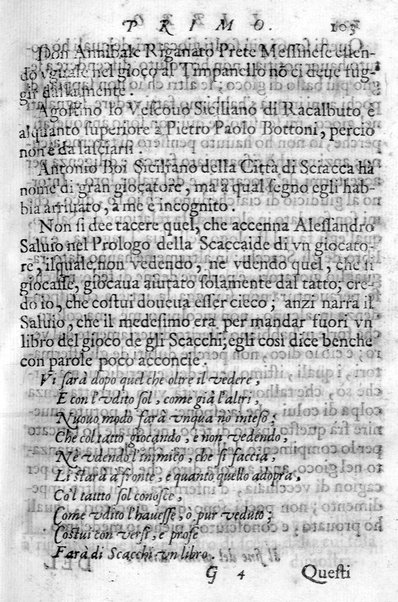 PRIMO. 103
Don Annibale Riganato Prete Messinese essen-
do vguale nel gioco al Timpanello nõ ci deue fug-
gir dalla mente.
Agostino lo Vescouo Siciliano di Racalbuto, è
alquanto superiore à Pietro Paolo Bottoni, perciò
non è da lasciarsi.
Antonio Boi Siciliano della Città di Sciacca hà
nome di gran giocatore, ma à qual segno egli hab-
bia arriuato, à me è incognito.
Non si dee tacere quel, che accenna Alessandro
Saluio nel Prologo della Scaccaide di vn giocato-
re, ilquale non vedendo, nè vdendo quel, che si
giocasse, giocaua aiutato solamente dal tatto; cre-
do io, che costui doueua esser cieco, anzi narra il
Saluio, che il medesimo era per mandar fuori vn
libro del gioco de gli Scacchi; egli così dice benche
con parole poco acconcie.
Vi sarà dopo quel che oltre il vedere,
E con l'vdito sol, come già l'altri,
Nuouo modo sarà vnqua nò inteso;
Che col tatto giocando, e non vedendo,
Nè vdendo l'inimico, che si faccia,
Li starà à fronte, e quanto quello adopra,
Co'l tatto sol conosce,
Come vdito l'hauesse, ò pur veduto;
Costui con versi, e prose
Farà di Scacchi vn libro.
G 4 Questi